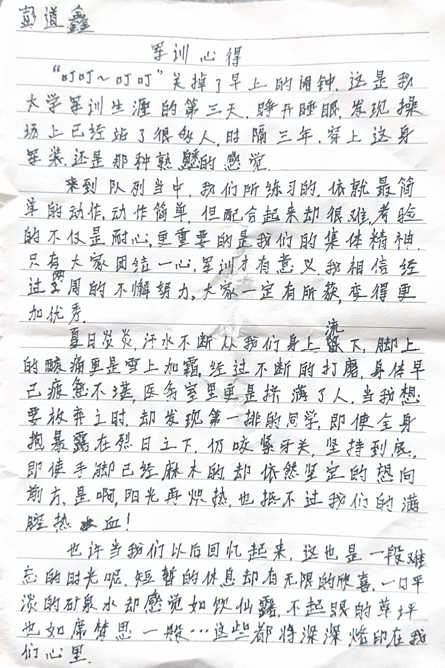 彭道鑫
军训心得
“叮叮~叮叮”关掉了早上的闹钟,这是我
大学军训生涯的第三天,睁开睡眼,发现操
场上已经站了很多人,时隔三年,穿上这身
军装,还是那种熟悉的感觉.
来到队列当中,我们所练习的,依就最简
单的动作,动作简单,但配合起来却很难,考验
的不仅是耐心,更重要的是我们的集体精神.
只有大家团结一心,军训才有意义,我相信经
过两周的不懈努力,大家一定有所获,变得更
加优秀.
夏日炎炎,汗水不断从我们身上流下,脚上
的酸痛更是雪上加霜,经过不断的打磨,身体早
已疲惫不堪,医务室里更是挤满了人,当我想
要放弃之时,却发现第一排的同学,即使全身
抱暴露在烈日之下,仍咬紧牙关,坚持到底,
即使手脚已经麻木的却依然坚定的想向
前方,是啊,阳光再炽热,也抵不过我们的满
腔热血!
也许当我们以后回忆起来,这也是一段难
忘的时光呢,短暂的休息却有无限的欣喜,一口平
淡的矿泉水却感觉如饮仙露,不起眼的草坪
也如席梦思一般…这些都将深深烙印在我
们心里.